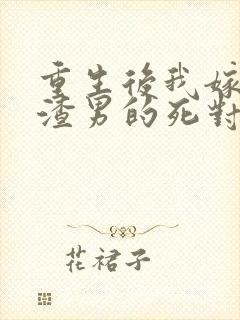 重生後我嫁
渣男的死對
花裙子